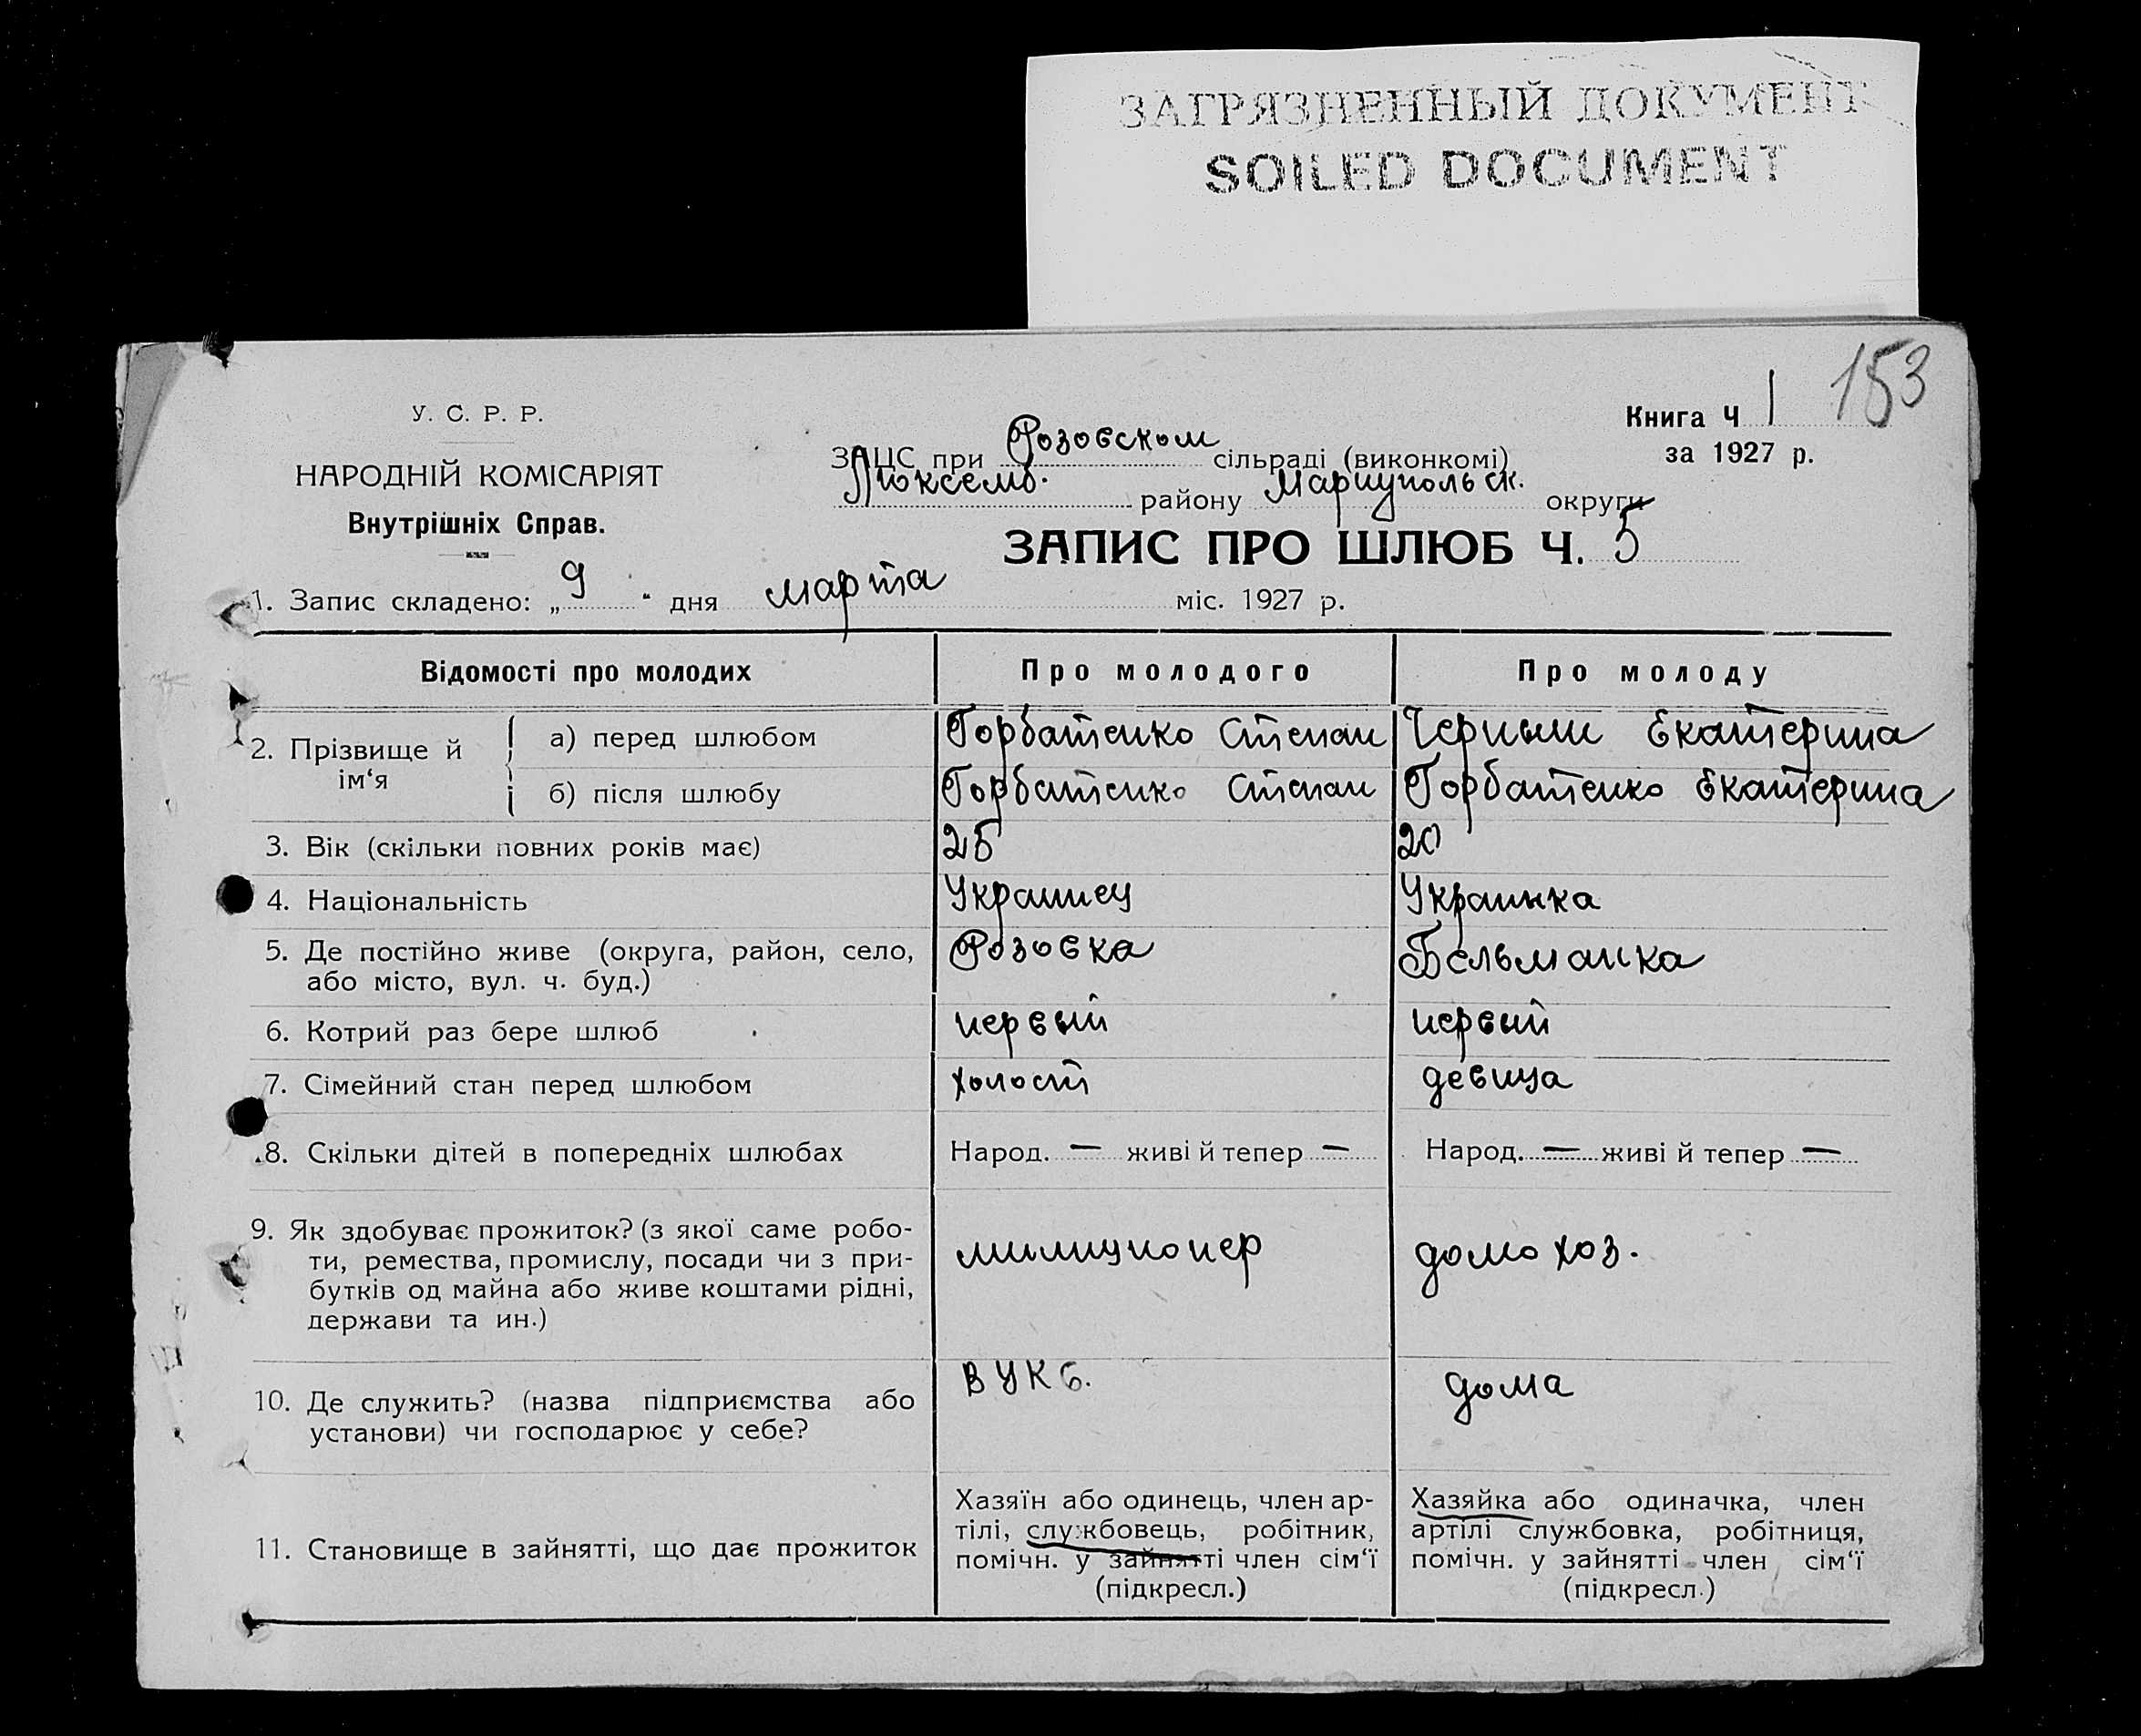 ЗАГРЯЗНЕННЫЙ ДОКУМЕНТ
SOILED DOCUMENT
153
Книга Ч 1
за 1927 р.
У. С. Р. Р.
НАРОДНІЙ КОМІСАРІЯТ
Внутрішніх Справ.
ЗАЦС при Розовском сільраді (виконкомі)
Люксемб. району Мариупольск. округи
ЗАПИС ПРО ШЛЮБ Ч. 5
1. Запис складено: „9“ дня марта міс. 1927 р.
Відомості про молодих
Про молодого
Про молоду
2. Прізвище й ім‘я
а) перед шлюбом
Горбатенко Степан
Черныш Екатерина
б) після шлюбу
Горбатенко Степан
Горбатенко Екатерина
3. Вік (скільки повних років має)
25
20
4. Національність
Украинец
Украинка
5. Де постійно живе (округа, район, село,
або місто, вул. ч. буд.)
Розовка
Бельманка
6. Котрий раз бере шлюб
первый
первый
7. Сімейний стан перед шлюбом
холост
девица
8. Скільки дітей в попередніх шлюбах
Народ. — живі й тепер —
Народ. — живі й тепер —
9. Як здобуває прожиток? (з якої саме робо-
ти, ремества, промислу, посади чи з при-
бутків од майна або живе коштами рідні,
держави та ин.)
милиционер
домохоз.
10. Де служить? (назва підприємства або
установи) чи господарює у себе?
дома
11. Становище в зайнятті, що дає прожиток
Хазяїн або одинець, член ар-
тілі, службовець, робітник,
помічн. у зайнятті член сім‘ї
(підкресл.)
Хазяйка або одиначка, член
артілі службовка, робітниця,
помічн. у зайнятті член сім‘ї
(підкресл.)